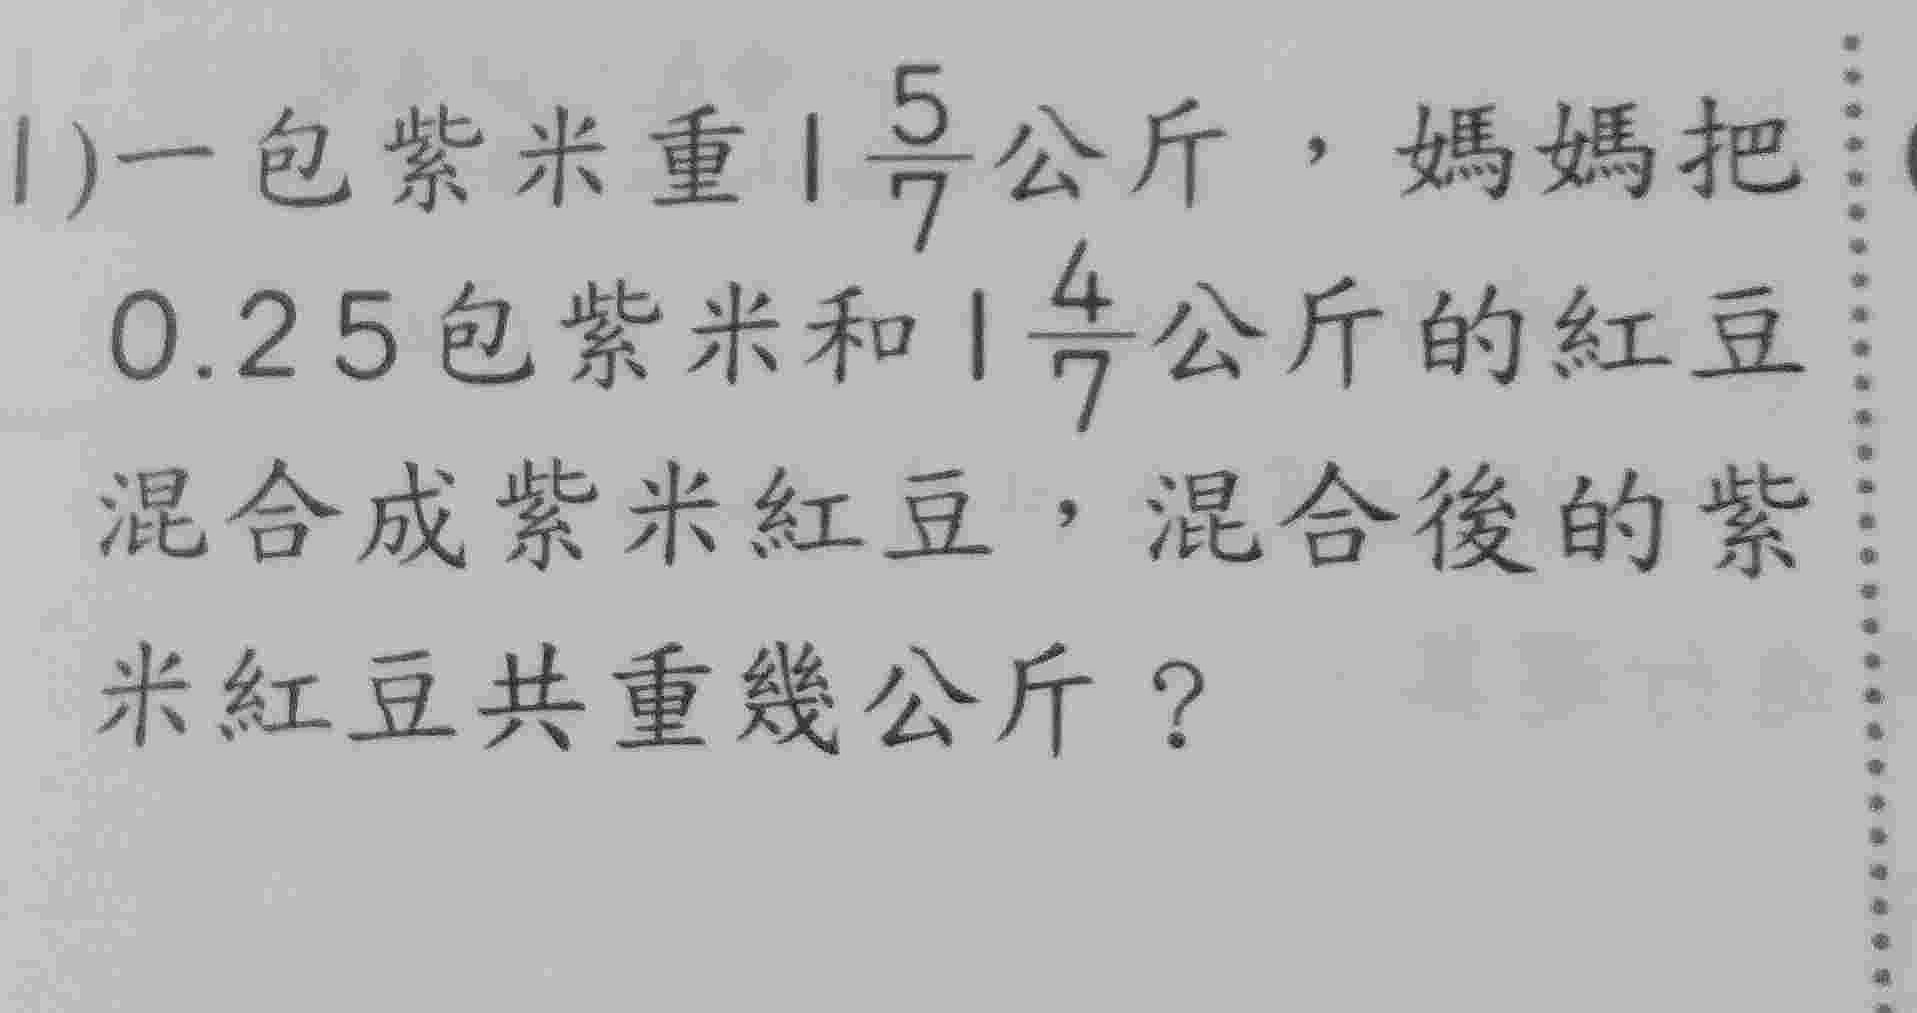 1)一包紫米重1 5/7公斤,媽媽把
0.25包紫米和1 4/7公斤的紅豆
混合成紫米紅豆,混合後的紫
米紅豆共重幾公斤?